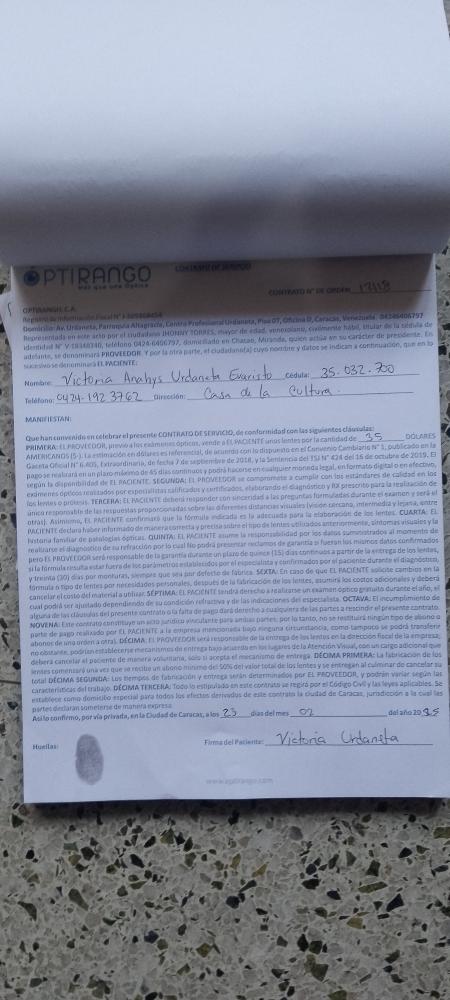 OPTIRANGO
más que una Óptica
CONTRATO DE SERVICIO
CONTRATO N° DE ORDEN 12118
OPTIRANGO, C.A.
Registro de Información Fiscal N°
Domicilio: Av. Urdaneta, Parroquia Altagracia, Centro Profesional Urdaneta, Piso 07, Oficina D, Caracas, Venezuela. 04246406797
Representada en este acto por el ciudadano JHONNY TORRES, mayor de edad, venezolano, civilmente hábil, titular de la cédula de
identidad N° V 18346340, teléfono 0424-6406797, domiciliado en Chacao, Miranda, quien actúa en su carácter de presidente. En
adelante, se denominará PROVEEDOR. Y por la otra parte, el ciudadano(a) cuyo nombre y datos se indican a continuación, que en lo
sucesivo se denominará EL PACIENTE:
Nombre: Victoria Anahys Urdaneta Evaristo Cédula: 35.032.700
Teléfono: 0424-1923762 Dirección: Casa de la Cultura.
MANIFIESTAN:
Que han convenido en celebrar el presente CONTRATO DE SERVICIO, de conformidad con las siguientes cláusulas:
PRIMERA: EL PROVEEDOR, previo a los exámenes ópticos, vende a EL PACIENTE unos lentes por la cantidad de 35 DOLARES
AMERICANOS ($-). La estimación en dólares es referencial, de acuerdo con lo dispuesto en el Convenio Cambiario N° 1, publicado en la
Gaceta Oficial N° 6.405, Extraordinaria, de fecha 7 de septiembre de 2018, y la Sentencia del TSJ N° 424 del 16 de octubre de 2019. El
pago se realizará en un plazo máximo de 45 días continuos y podrá hacerse en cualquier moneda legal, en formato digital o en efectivo,
según la disponibilidad de EL PACIENTE. SEGUNDA: EL PROVEEDOR se compromete a cumplir con los estándares de calidad en los
exámenes ópticos realizados por especialistas calificados y certificados, elaborando el diagnóstico y RX prescrito para la realización de
los lentes o prótesis. TERCERA: EL PACIENTE deberá responder con sinceridad a las preguntas formuladas durante el examen y será el
único responsable de las respuestas proporcionadas sobre las diferentes distancias visuales (visión cercana, intermedia y lejana, entre
otras). Asimismo, EL PACIENTE confirmará que la fórmula indicada es la adecuada para la elaboración de los lentes. CUARTA: EL
PACIENTE declara haber informado de manera correcta y precisa sobre el tipo de lentes utilizados anteriormente, síntomas visuales y la
historia familiar de patologías ópticas. QUINTA: EL PACIENTE asume la responsabilidad por los datos suministrados al momento de
realizarse el diagnostico de su refracción por lo cual No podrá presentar reclamos de garantía si fueran los mismos datos confirmados
pero EL PROVEEDOR será responsable de la garantía durante un plazo de quince (15) días continuos a partir de la entrega de los lentes,
si la fórmula resulta estar fuera de los parámetros establecidos por el especialista y confirmados por el paciente durante el diagnóstico,
y treinta (30) días por monturas, siempre que sea por defecto de fábrica. SEXTA: En caso de que EL PACIENTE solicite cambios en la
fórmula o tipo de lentes por necesidades personales, después de la fabricación de los lentes, asumirá los costos adicionales y deberá
cancelar el costo del material a utilizar. SÉPTIMA: EL PACIENTE tendrá derecho a realizarse un examen óptico gratuito durante el año, el
cual podrá ser ajustado dependiendo de su condición refractiva y de las indicaciones del especialista. OCTAVA: El incumplimiento de
alguna de las cláusulas del presente contrato o la falta de pago dará derecho a cualquiera de las partes a rescindir el presente contrato.
NOVENA: Este contrato constituye un acto jurídico vinculante para ambas partes; por lo tanto, no se restituirá ningún tipo de abono o
parte de pago realizado por EL PACIENTE a la empresa mencionada bajo ninguna circunstancia, como tampoco se podrá transferir
abonos de una orden a otra). DÉCIMA: EL PROVEEDOR será responsable de la entrega de los lentes en la dirección fiscal de la empresa;
no obstante, podrían establecerse mecanismos de entrega bajo acuerdo en los lugares de la Atención Visual, con un cargo adicional que
deberá cancelar el paciente de manera voluntaria, solo si acepta el mecanismo de entrega. DÉCIMA PRIMERA: La fabricación de los
lentes comenzará una vez que se reciba un abono mínimo del 50% del valor total de los lentes y se entregan al culminar de cancelar su
total DÉCIMA SEGUNDA: Los tiempos de fabricación y entrega serán determinados por EL PROVEEDOR, y podrán variar según las
características del trabajo. DÉCIMA TERCERA: Todo lo estipulado en este contrato se regirá por el Código Civil y las leyes aplicables. Se
establece como domicilio especial para todos los efectos derivados de este contrato la ciudad de Caracas, jurisdicción a la cual las
partes declaran someterse de manera expresa.
Así lo confirmo, por vía privada, en la Ciudad de Caracas, a los 23 días del mes 02 del año 2025
Huellas: Firma del Paciente: Victoria Urdaneta
www.optirango.com